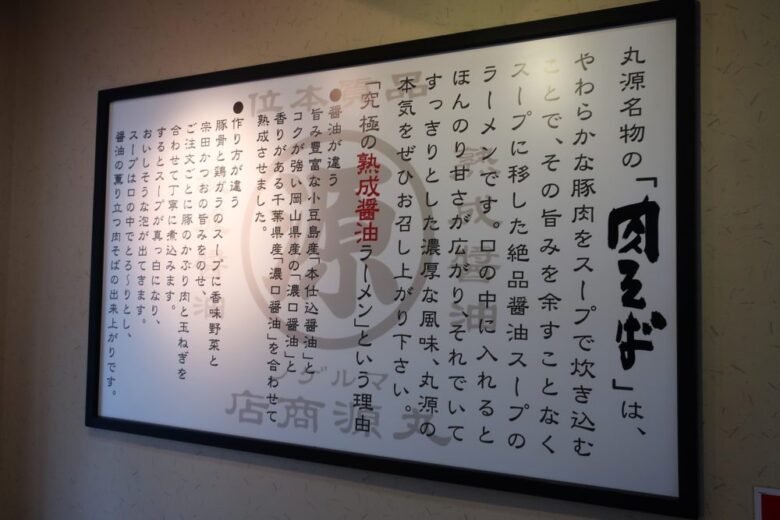 丸源名物の「肉そば」は、
やわらかな豚肉をスープで炊き込む
ことで、その旨みを余すことなく
スープに移した絶品醤油スープの
ラーメンです。口の中に入れると
ほんのり甘さが広がり、それでいて
すっきりとした濃厚な風味、丸源の
本気をぜひお召し上がり下さい。
「究極の熟成醤油ラーメン」という理由
●醤油が違う
旨み豊富な小豆島産「本仕込醤油」と
コクが強い岡山県産の「濃口醤油」と
香りがある千葉県産「濃口醤油」を合わせて
熟成させました。
●作り方が違う
豚骨と鶏ガラのスープに香味野菜と
宗田かつおの旨みをのせ、
ご注文ごとに豚のかぶり肉と玉ねぎを
合わせて丁寧に煮込みます。
するとスープが真っ白になり、
おいしそうな泡が出てきます。
スープは口の中でとろ~りとし、
醤油の薫り立つ肉そばの出来上がりです。
熟成醤油
源
マルゲン
丸源商店